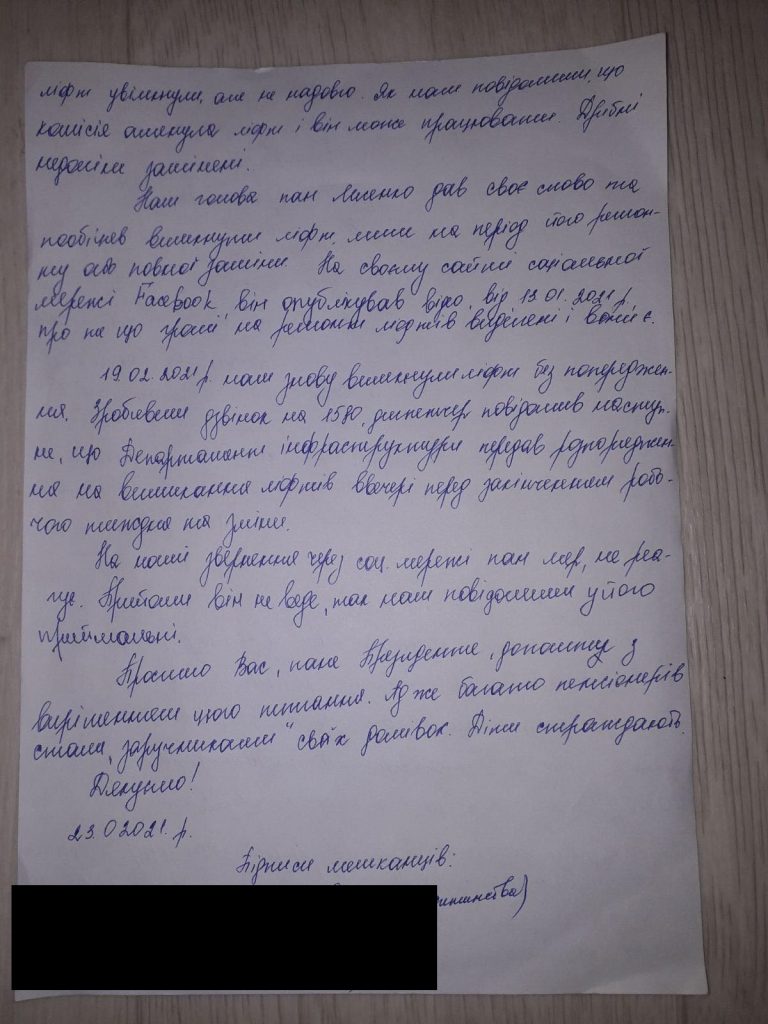 ліфт увімкнули, але не надовго. Як нам повідомили, що
комісія оглянула ліфт і він може працювати. Дрібні
недоліки замінені.
Наш голова пан дав своє слово та
пообіцяв вимкнути ліфт, лише на період його ремон-
ту або повної заміни. На своєму сайті соціальної
мережі Facebook, він опублікував відео, від 19.01.2021 р.,
про те що гроші на ремонт ліфтів виділені і вони є.
19.02.2021 р. нам знову вимкнули ліфт без попереджен-
ня. Зробивши дзвінок на 1580, диспетчер повідомив наступ-
не, що Департамент інфраструктури передав розпоряджен-
ня на вимикання ліфтів ввечері перед закінченням робо-
чого тиждня та зміни.
На наші звернення через соц. мережі пан мер, не реа-
гує. Прийоми він не веде, так нам повідомили у його
приймальні.
Просимо Вас, пане Президенте, допомогу з
вирішенням цього питання. Адже багато пенсіонерів
стали „заручниками" своїх домівок. Діти страждають.
Дякуємо!
23.02021 р.
Підписи мешканців: